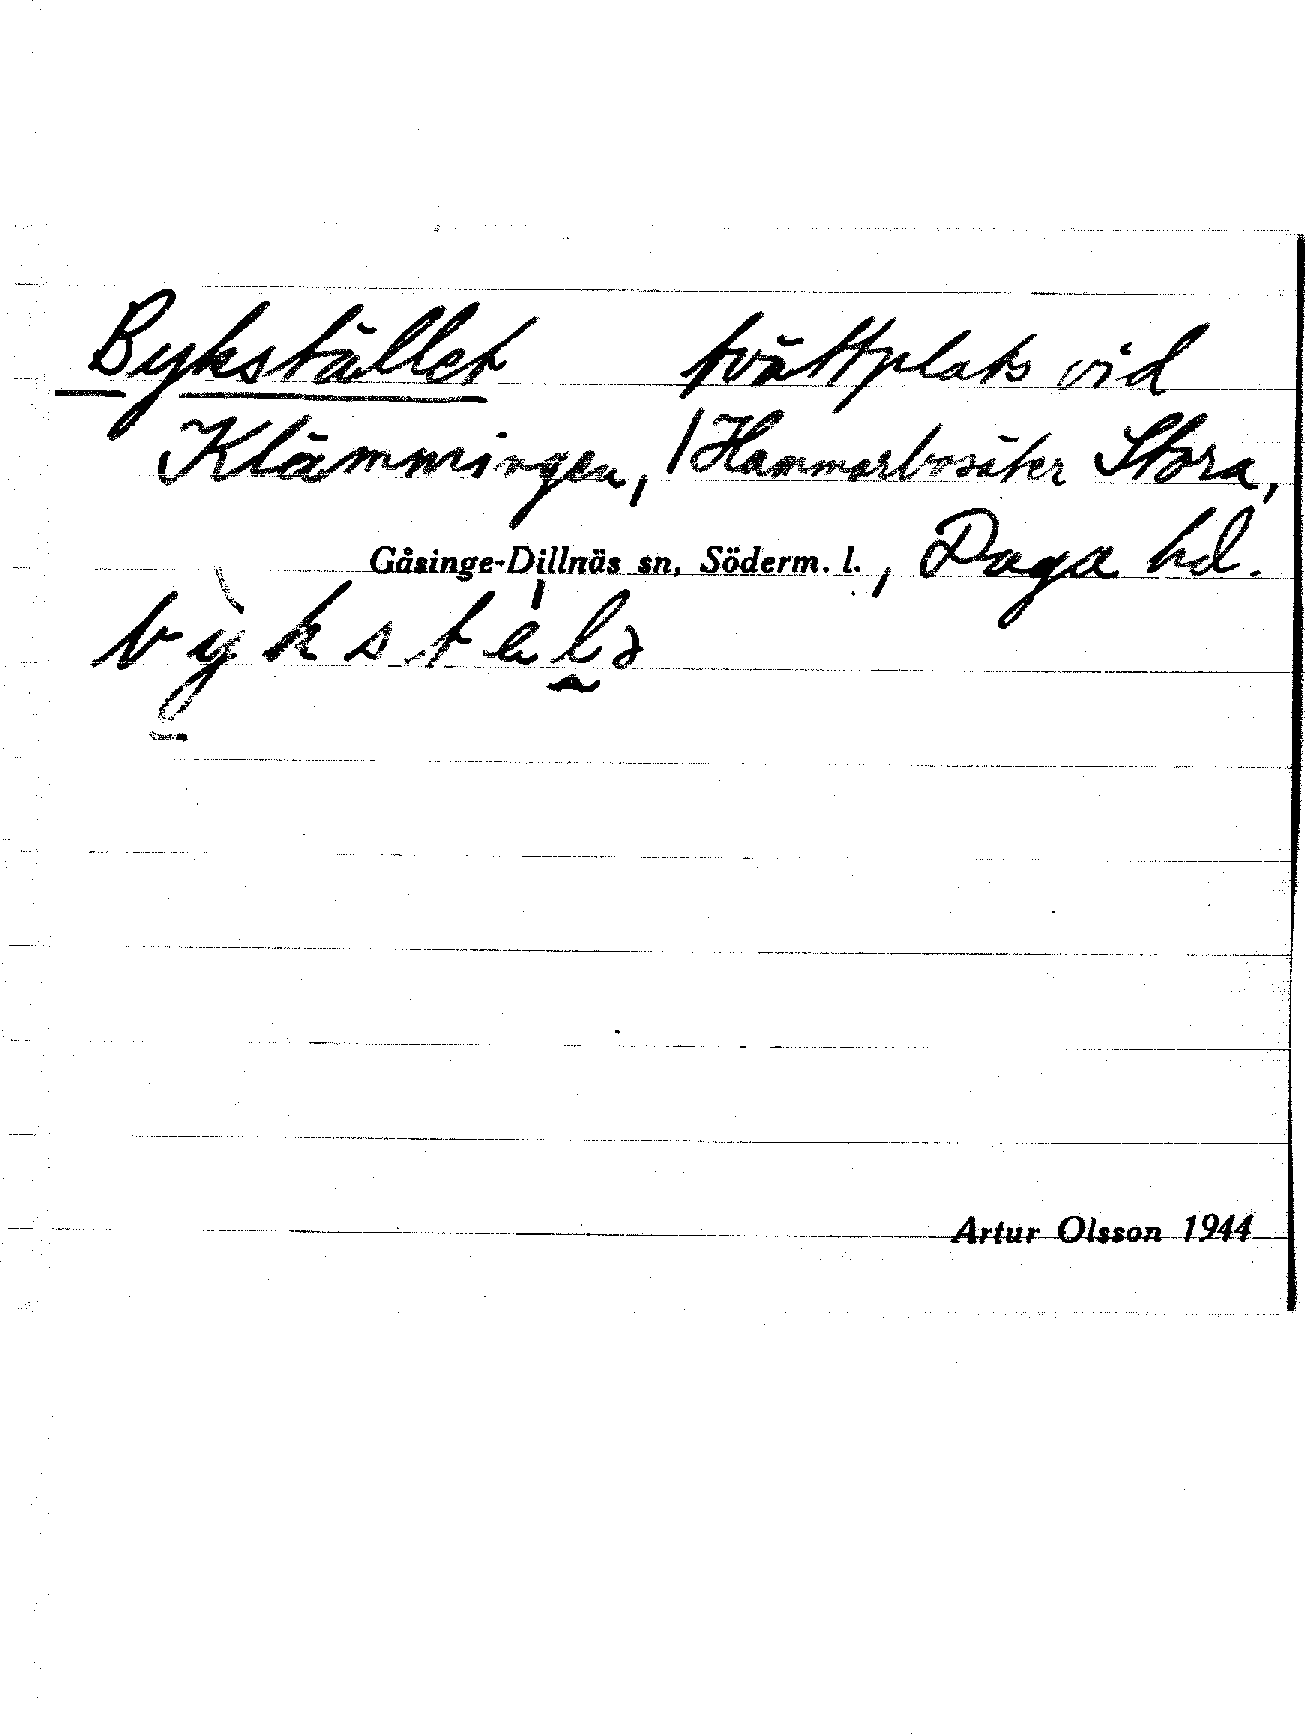 Bykstället tvättplats vid
Klämmingen, / Hammarbosäter Stora,
Gåsinge-Dillnäs sn, Söderm. l., Daga hd.
Artur Olsson 1944